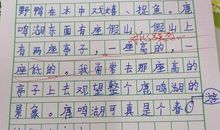 野鸭在水中戏嬉、捉鱼。鹿
鸣湖东面有座假山，假山上
有两座亭子，一座高的，一
座低的。我常常去那座高的
亭子上去观望整个鹿鸣湖的
景象。鹿鸣湖可真是个春